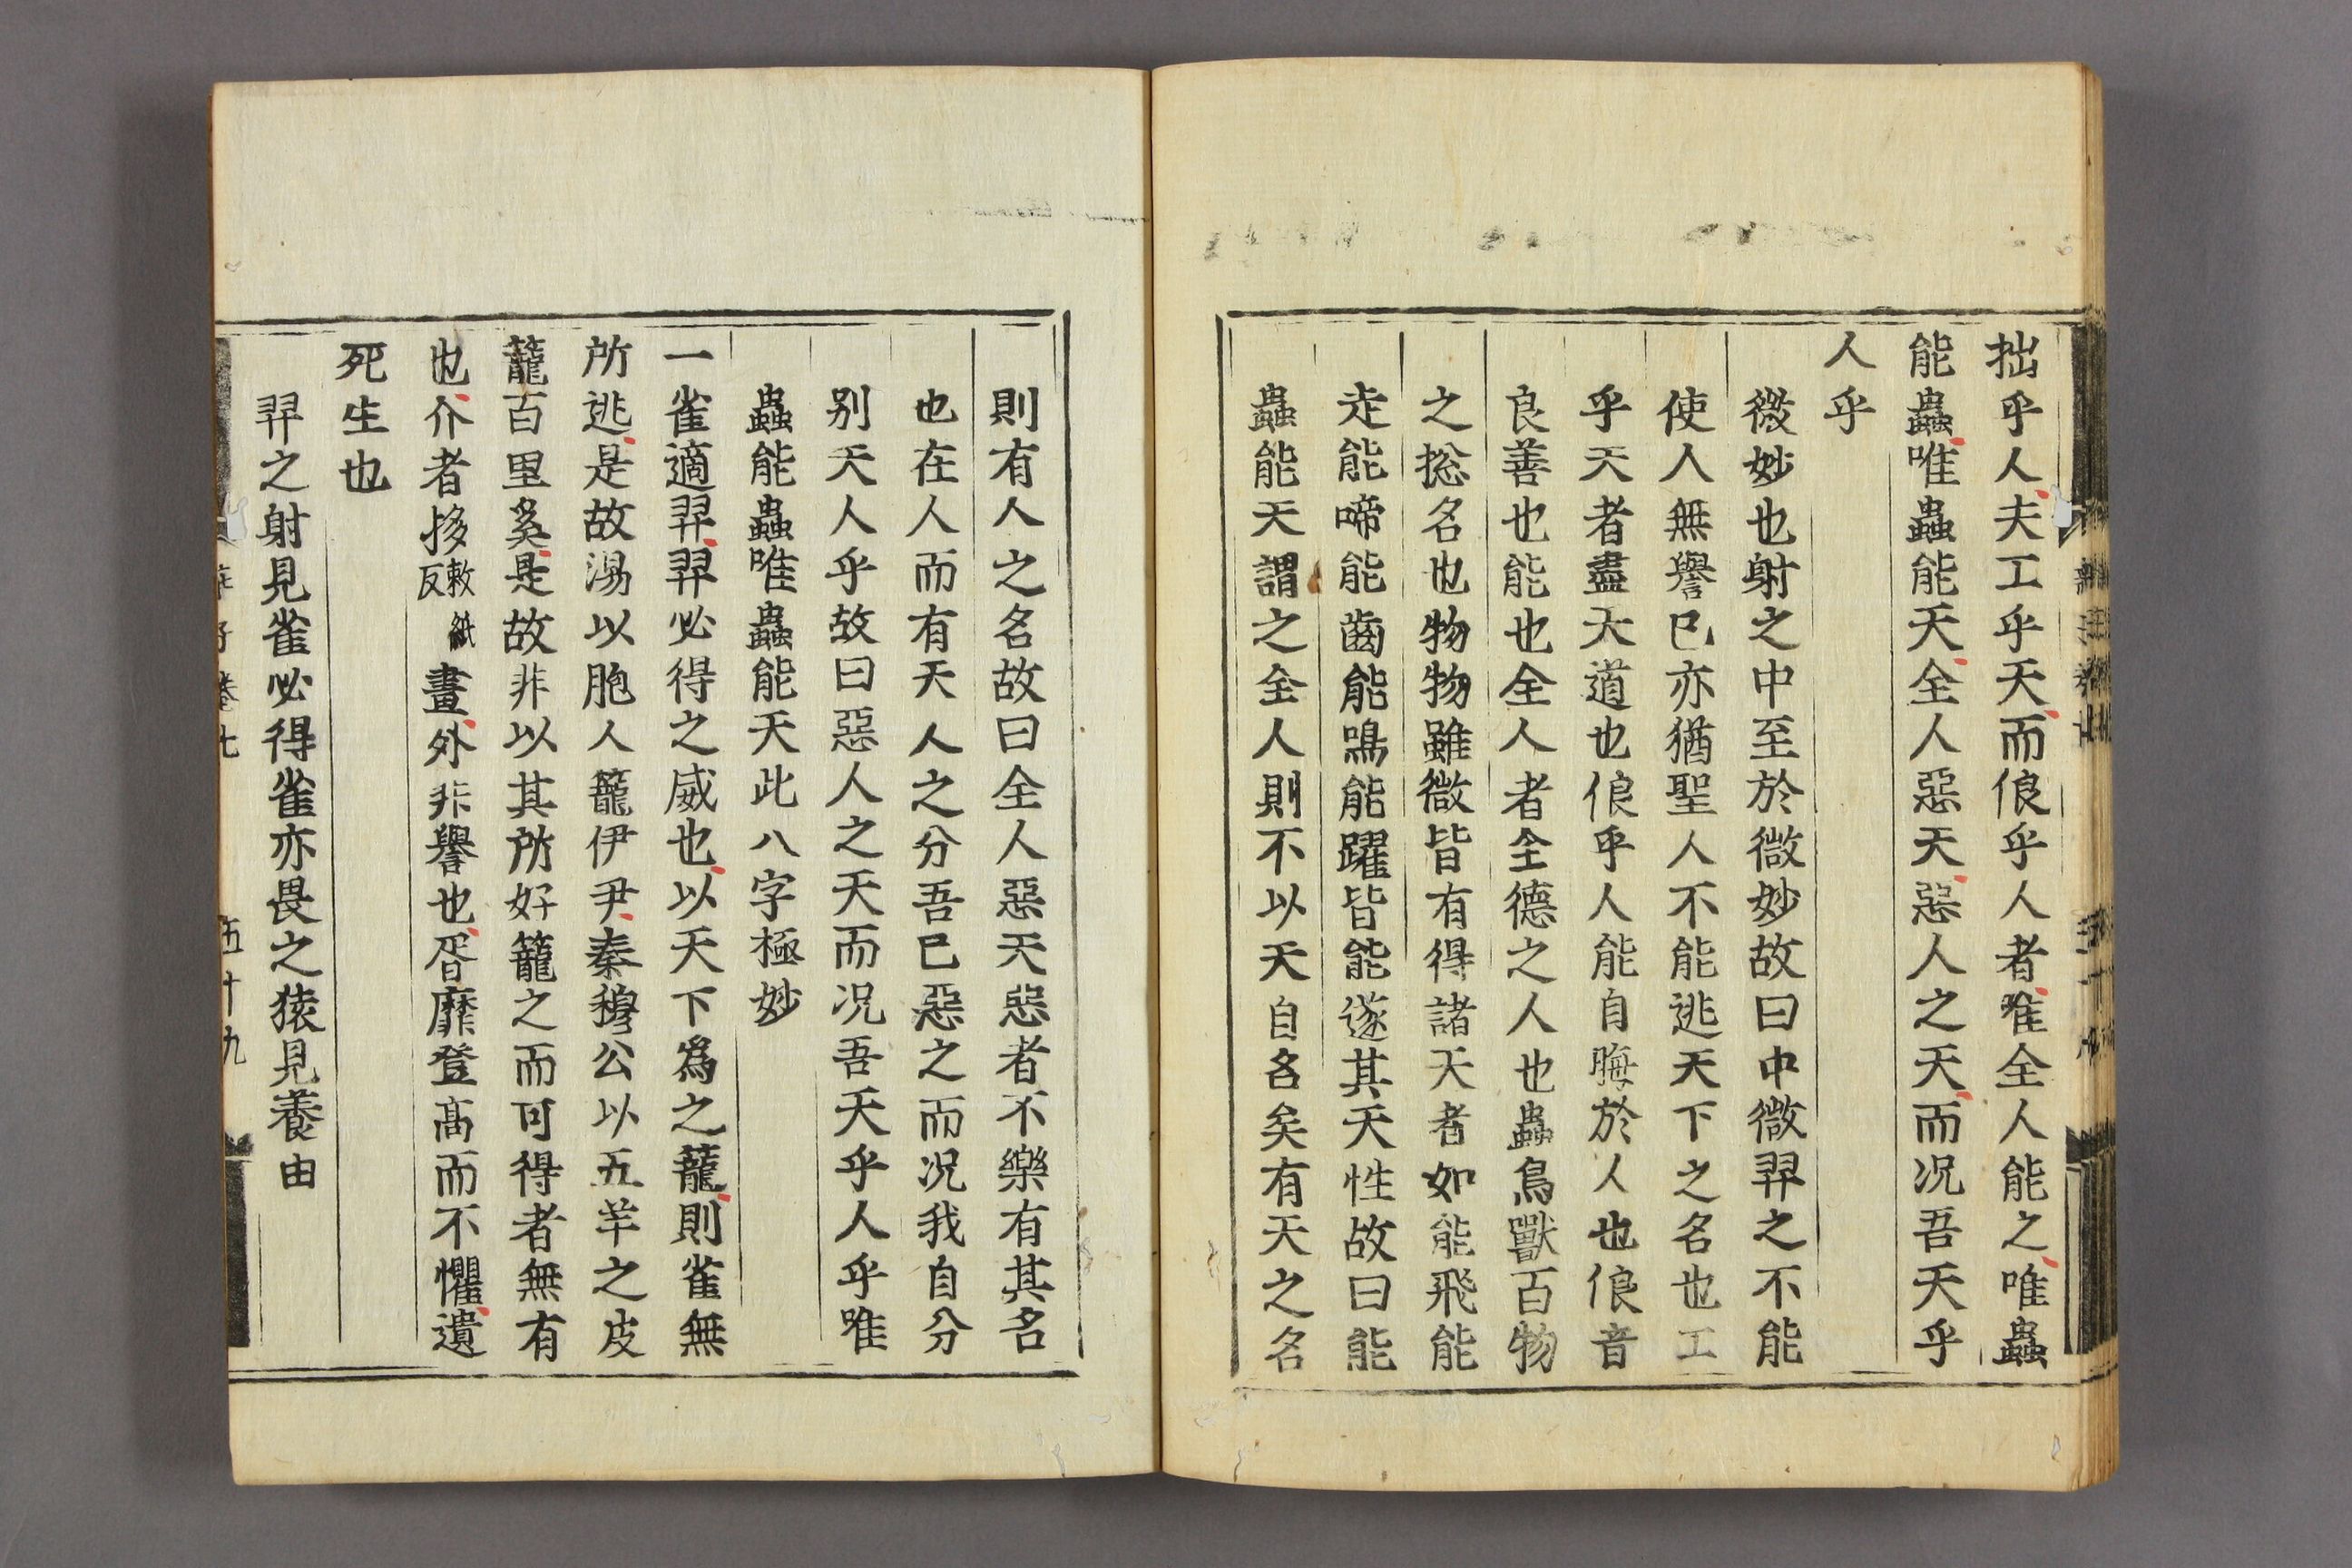 拙乎人夫工乎天而俍乎人者唯全人能之唯蟲
能蟲唯蟲能天全人惡天惡人之天而况吾天乎
人乎
微妙也射之中至於微妙故曰中微羿之不能
使人無譽已亦猶聖人不能逃天下之名也工
乎天者盡天道也俍乎人能自晦於人也俍音
良善也能也全人者全德之人也蟲鳥獸百物
之捴名也物物雖微皆有得諸天者如能飛能
走能啼能齒能鳴能躍皆能遂其天性故曰能
蟲能天謂之全人則不以天自名矣有天之名
則有人之名故曰全人惡天惡者不樂有其名
也在人而有天人之分吾已惡之而况我自分
别天人乎故曰惡人之天而况吾天乎人乎唯
蟲能蟲唯蟲能天此八字極妙
一雀適羿羿必得之威也以天下爲之籠則雀無
所逃是故湯以胞人籠伊尹秦穆公以五羊之皮
籠百里奚是故非以其所好籠之而可得者無有
也介者拸敕紙反畫外非譽也胥靡登高而不懼遺
死生也
羿之射見雀必得雀亦畏之猿見養由
莊子卷七 五十九